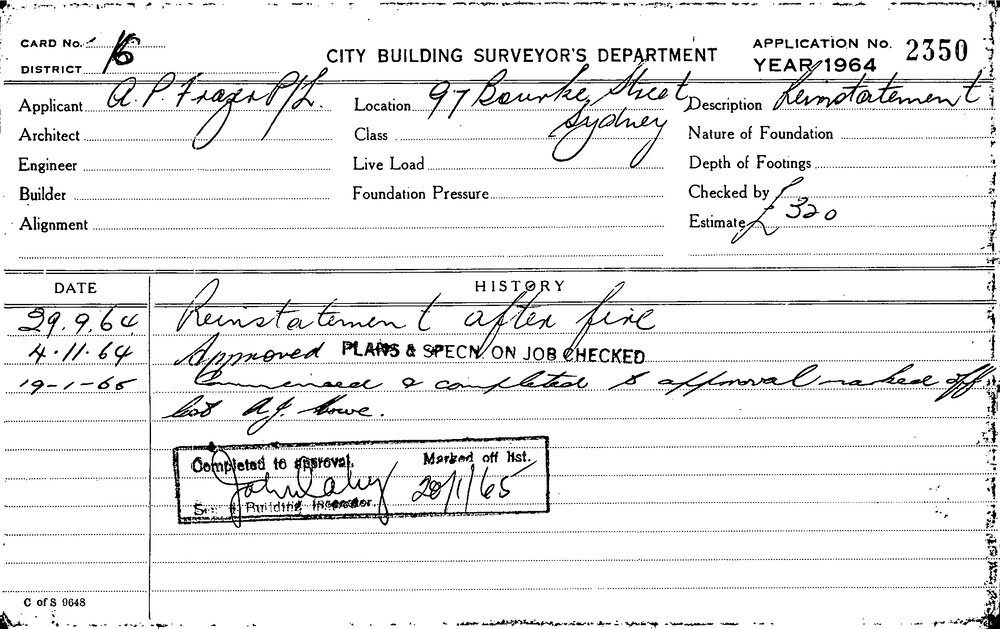 CARD No. 16
DISTRICT
CITY BUILDING SURVEYOR'S DEPARTMENT
APPLICATION No. 2350
YEAR 1964
Applicant A. P. Frazer P/L. Location 97 Bourke Street Sydney Description Reinstatement
Architect Class Nature of Foundation
Engineer Live Load Depth of Footings
Builder Foundation Pressure Checked by
Alignment Estimate £320
DATE HISTORY
29.9.64 Reinstatement after fire
4.11.64 Approved PLANS & SPECN. ON JOB CHECKED
19-1-65 Commenced & completed to approval marked off
list A.J. Howe.
Completed to approval. Marked off list.
28/1/65
Building Inspector.
C of S 9648